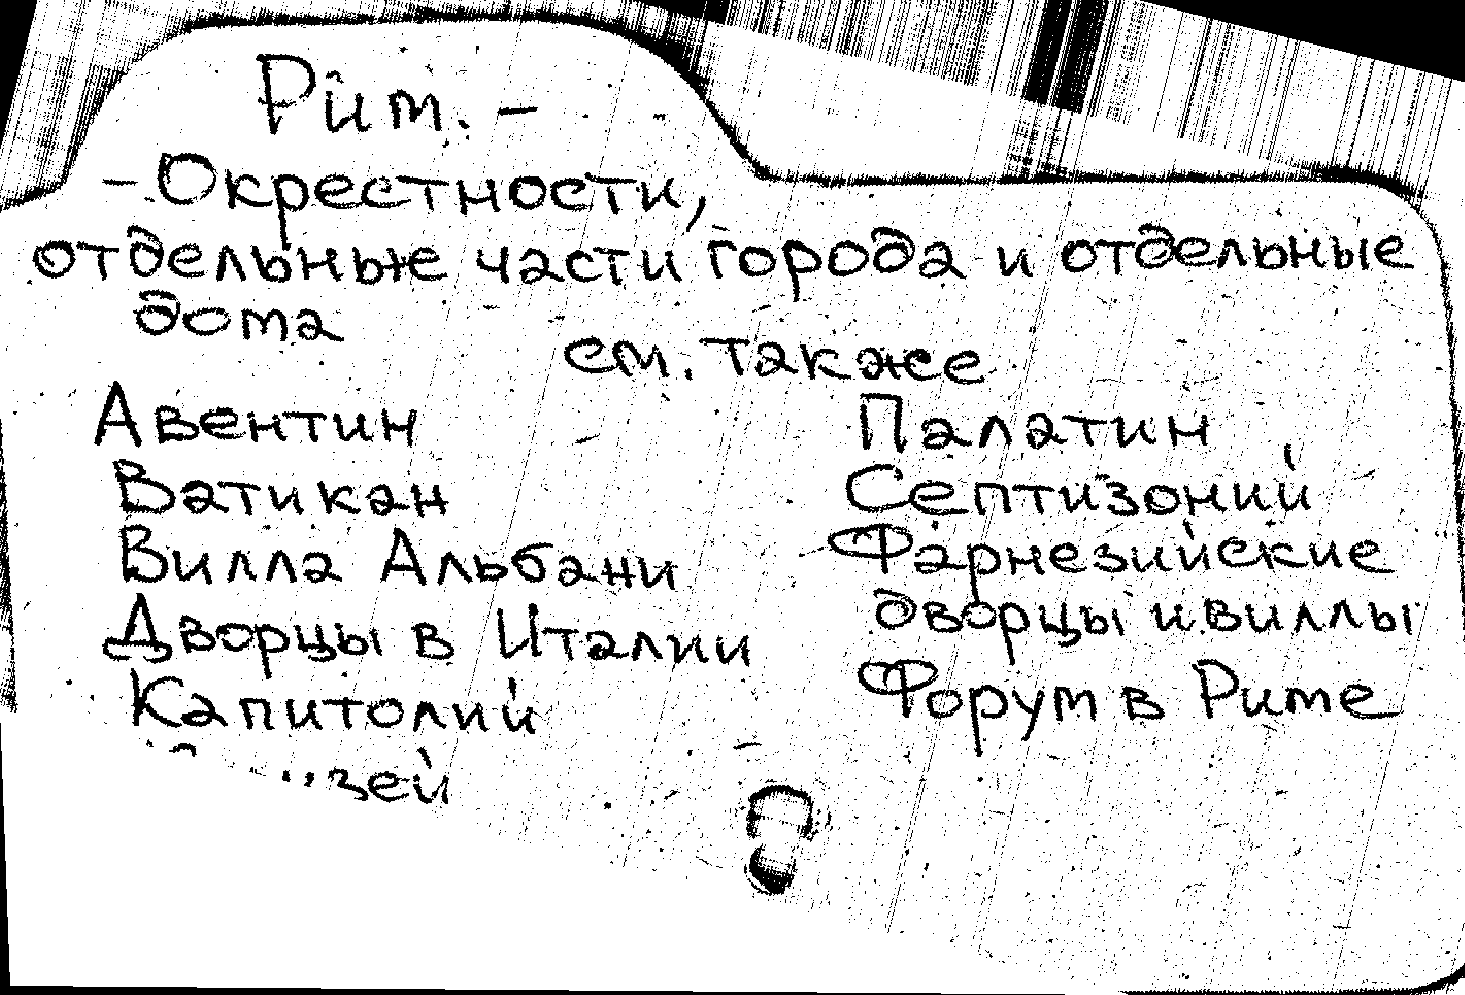 Рим. –
– Окрестности,
отдельные части города и отдельные
дома
см. также
Авентин
Ватикан
Вилла Альбани
Дворцы в Италии
Капитолий
Палатин
Септизоний
Фарнезийские
дворцы и виллы
Форум в Риме